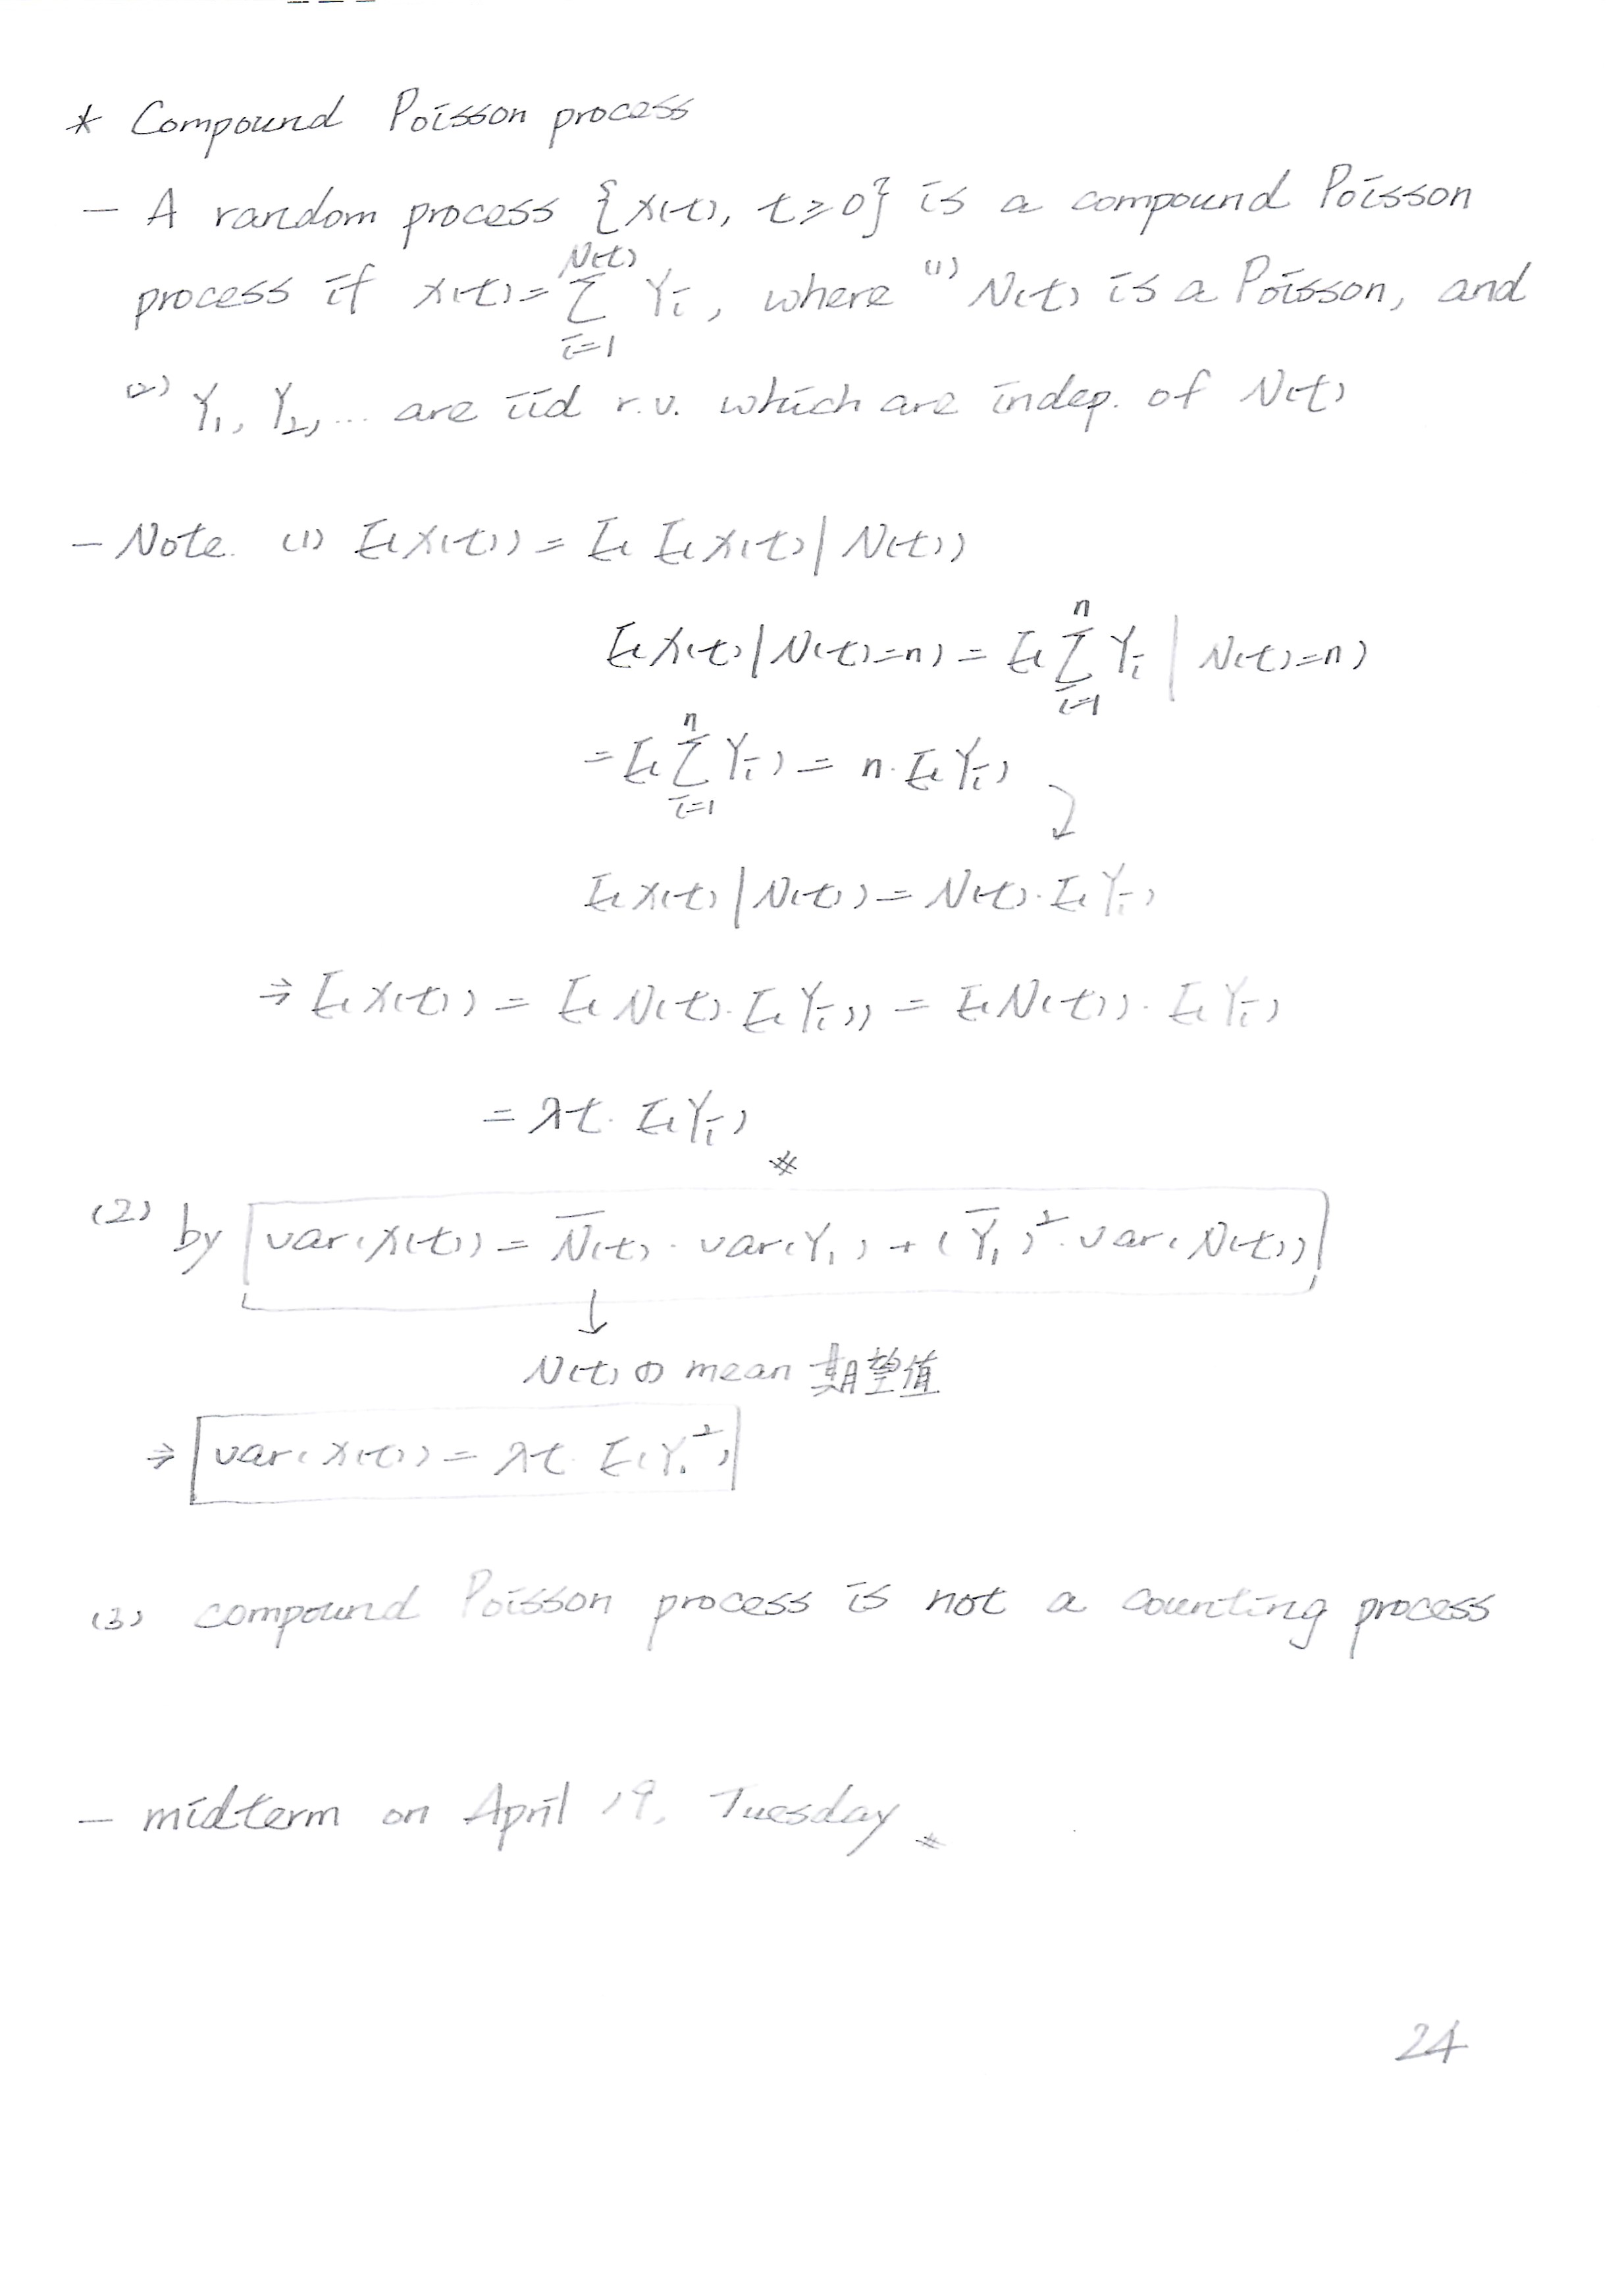 * Compound Poisson process
- A random process {X(t), t≥0} is a compound Poisson
process if X(t)=∑_{i=1}^{N(t)} Y_i, where (1) N(t) is a Poisson, and
(2) Y_1, Y_2, ... are iid r.v. which are indep. of N(t)
- Note. (1) E(X(t)) = E(E(X(t)|N(t))
E(X(t)|N(t)=n) = E(∑_{i=1}^{n} Y_i | N(t)=n)
= E(∑_{i=1}^{n} Y_i) = n·E(Y_i)
E(X(t)|N(t)) = N(t)·E(Y_i)
⇒ E(X(t)) = E(N(t)·E(Y_i)) = E(N(t))·E(Y_i)
= λt·E(Y_i) #
(2) by var(X(t)) = \overline{N}(t)·var(Y_1) + (\overline{Y}_1)^2·var(N(t))
↓
N(t) の mean 期望值
⇒ var(X(t)) = λt·E(Y_1^2)
(3) compound Poisson process is not a counting process
- midterm on April 19, Tuesday #
24